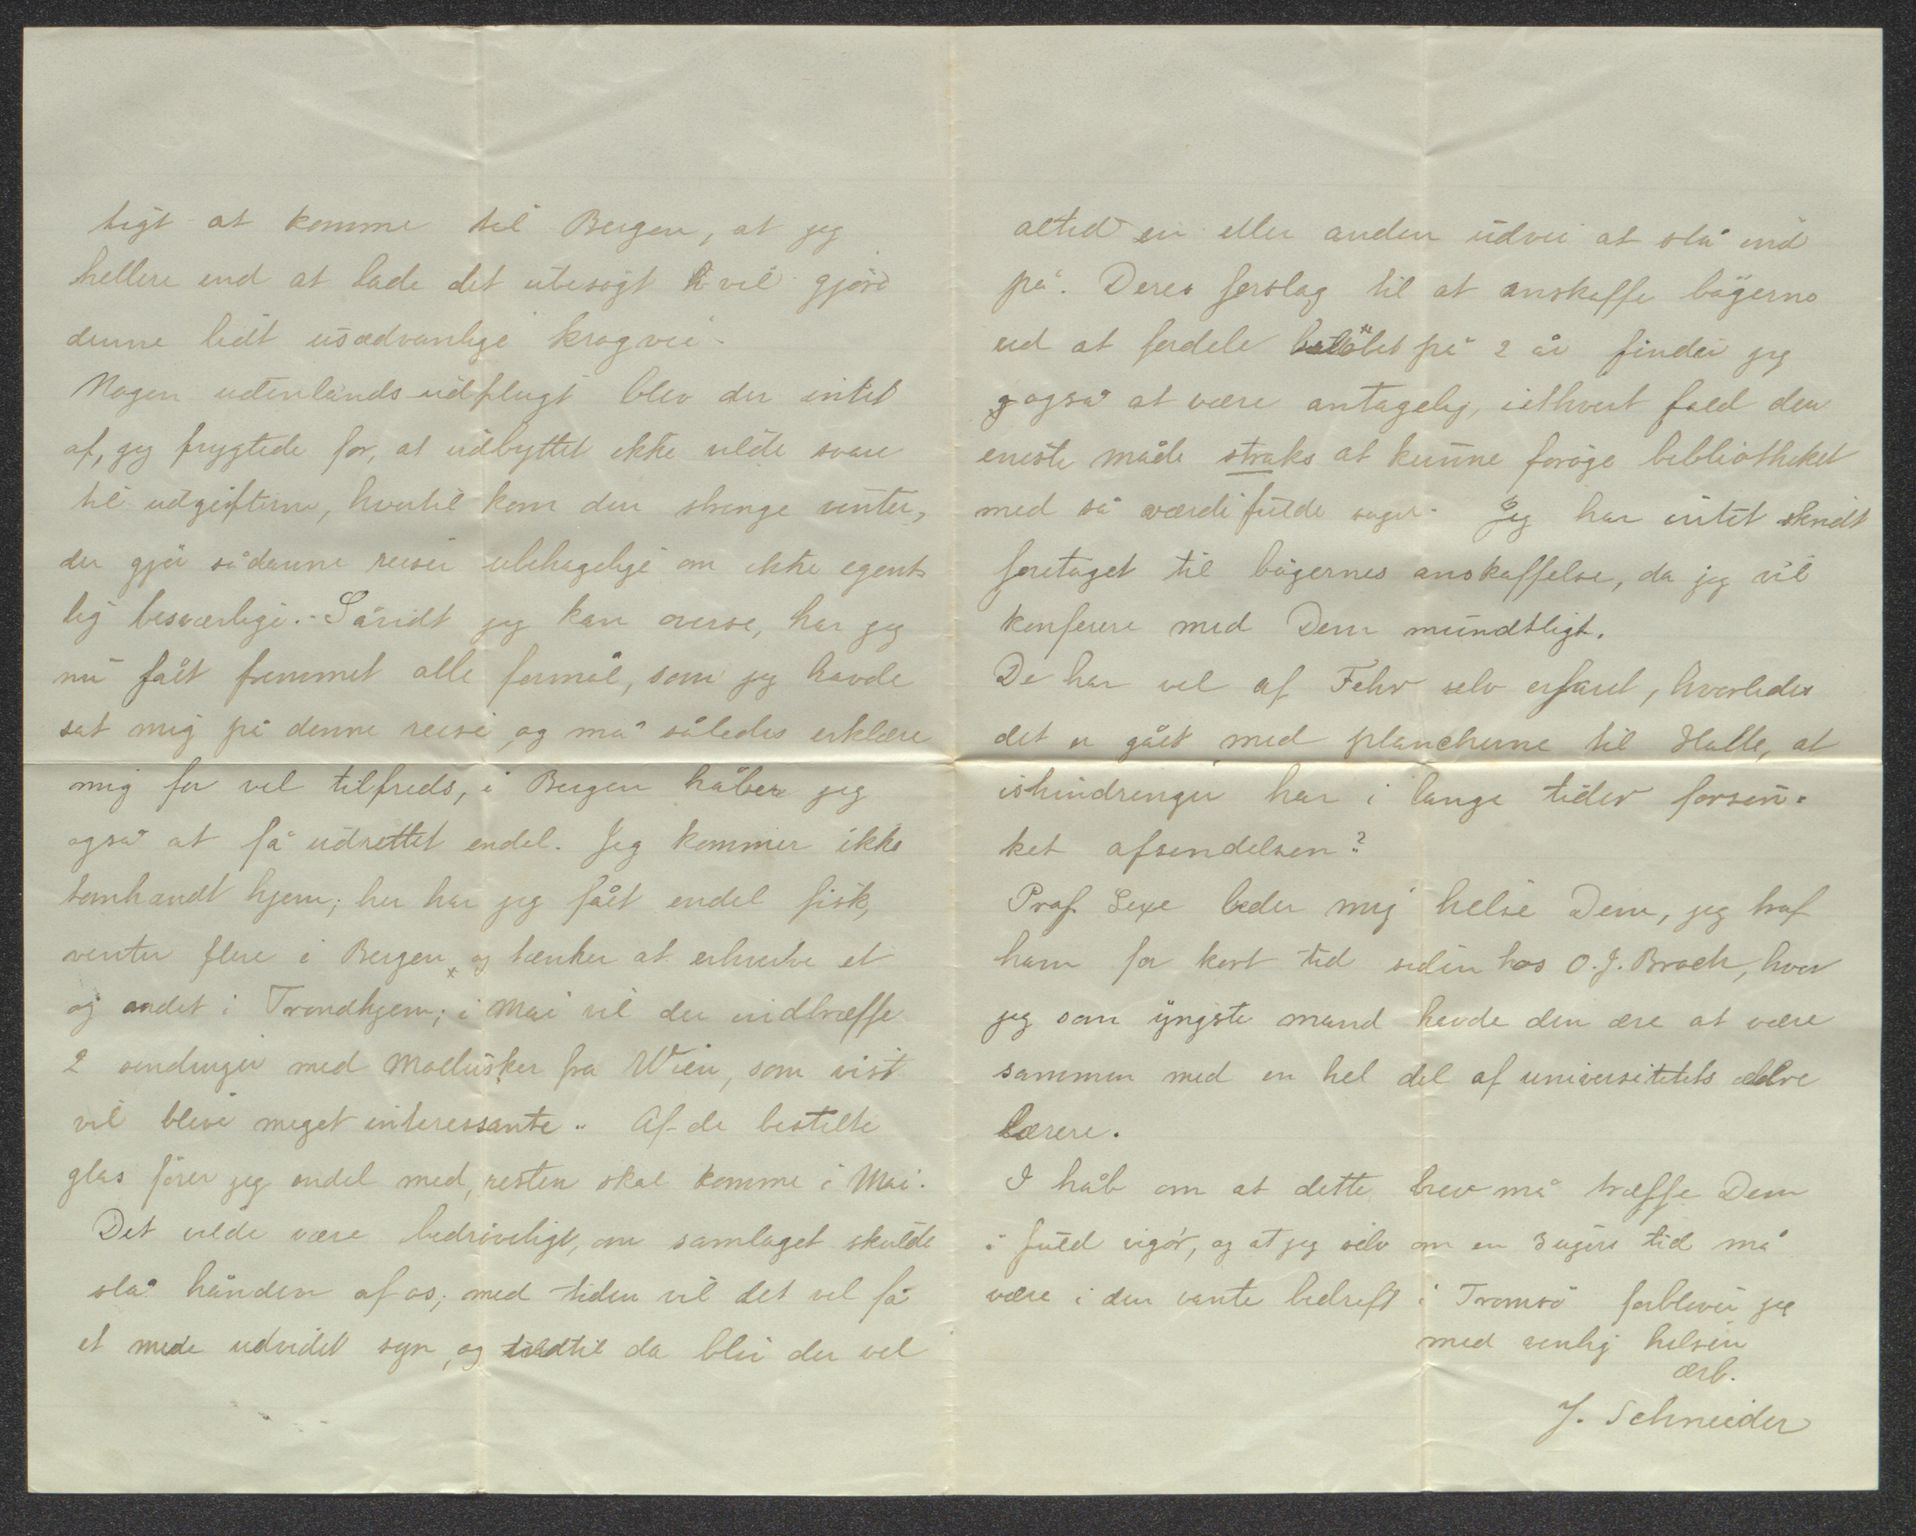 tigt at komme til Bergen, at jeg
hellere end at lade det ubesøgt vil gjøre
denne lidt usædvanlige krogvei.
Nogen udenlands-udflugt blev der intet
af, jeg frygtede for, at udbyttet ikke vilde svare
til udgifterne, hvortil kom den strenge vinter,
der gjør sådanne reiser ubehagelige om ikke egent-
lig besværlige. - Såvidt jeg kan overse, har jeg
nu fået fremmet alle formål, som jeg havde
sat mig på denne reise og må således erklære
mig for vel tilfreds, i Bergen håber jeg
også at få udrettet endel. Jeg kommer ikke
tomhændt hjem; her har jeg fået endel fisk,
venter flere i Bergen, og tænker at erhverve et
og andet i Trondhjem; i Mai vil der indtræffe
2 sendinger med Mollusker fra Wien, som vist
vil blive meget interessante. Af de bestilte
glas fører jeg endel med, resten skal komme i Mai.
Det vilde være bedrøveligt, om samlaget skulde
slå hånden af os; med tiden vil det vel få
et mere udvidet syn, og indtil da blir der vel
altid en eller anden udvei at slå ind
på. Deres forslag til at anskaffe bøgerne
ved at fordele beløbet på 2 år finder jeg
også at være antagelig, iethvert fald den
eneste måde straks at kunne forøge bibliotheket
med så værdifulde sager. Jeg har intet skridt
foretaget til bøgernes anskaffelse, da jeg vil
konferere med Dem mundtligt.
De har vel af Fehr selv erfaret, hvorledes
det er gået med plancherne til Halle, at
ishindringer har i lange tider forsin-
ket afsendelsen?
Prof. Sexe beder mig helse Dem, jeg traf
ham for kort tid siden hos O. J. Broch, hvor
jeg som yngste mand havde den ære at være
sammen med en hel del af universitetets ældre
lærere.
I håb om at dette brev må træffe Dem
i fuld vigør, og at jeg selv om en 3 ugers tid må
være i den vante bedrift i Tromsø forbliver jeg
med venlig hilsen
ærb.
J. Schneider